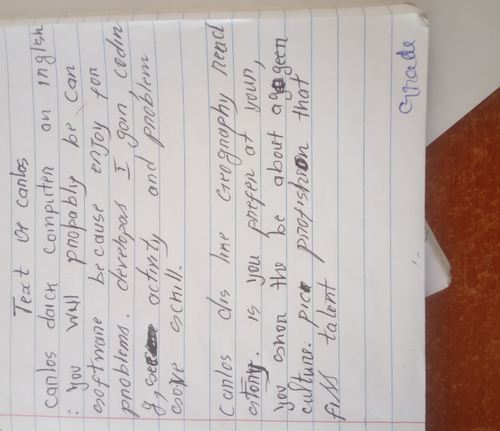 Text of Carlos
Carlos daick computer an inglsh
: you wall propably be can
software because enjoy for
problems. developas I gain codin
g, activity and problem
sove schill.
Carlos dis line Geography nend
story. is you prefer at your,
you shon the be about ageen
culture. pick profishion that
fiss talent
Grade